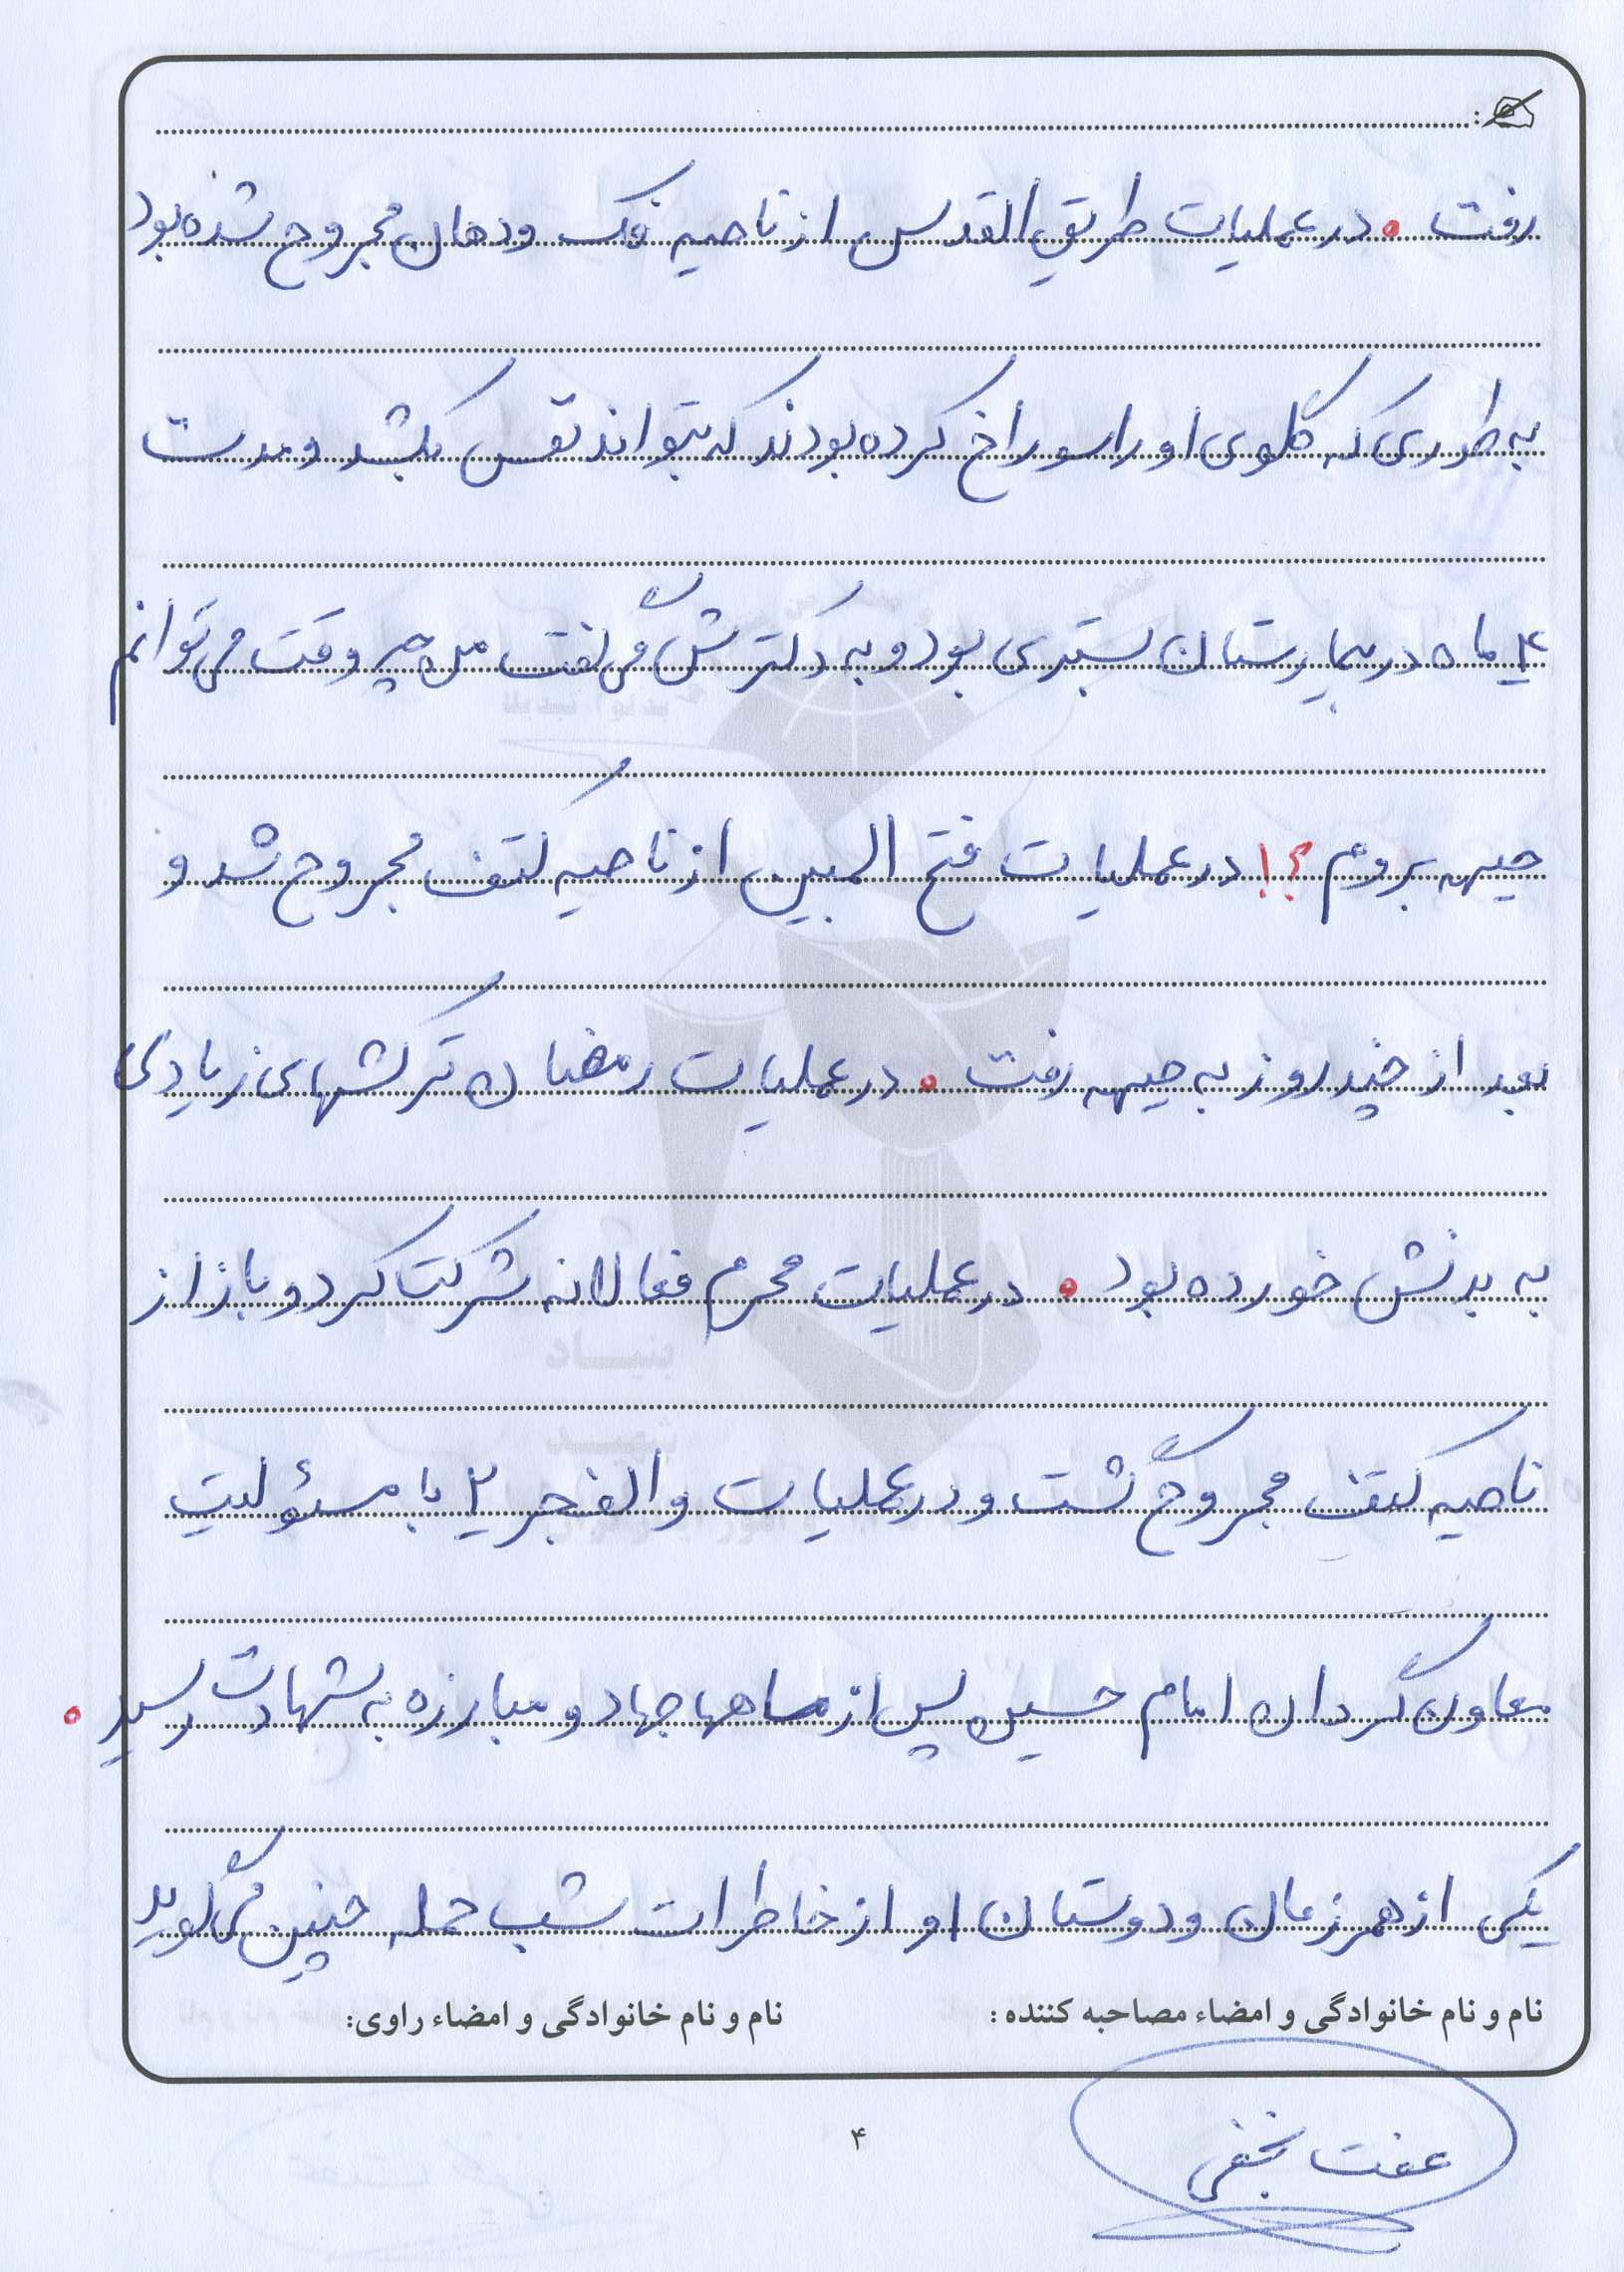 رفت . در عملیات طریق القدس از ناحیه فک ودهان مجروح شده بود
به طوری که گلوی او را سوراخ کرده بودند که بتواند نفس بکشد و مدت
۴ ماه در بیمارستان بستری بود و به دکترش می گفت من چه وقت می توانم
جبهه بروم ؟! در عملیات فتح المبین از ناحیه کتف مجروح شد و
بعد از چند روز به جبهه رفت . در عملیات رمضان ترکشهای زیادی
به بدنش خورده بود . در عملیات محرم فعالانه شرکت کرد و باز از
ناحیه کتف مجروح گشت و در عملیات والفجر ۲ با مسئولیت
معاون گردان امام حسین پس از ماهها جهاد و مبارزه به شهادت رسید .
یکی از همرزمان ودوستان او از خاطرات شب حمله چنین می گوید
نام و نام خانوادگی و امضاء مصاحبه کننده : نام و نام خانوادگی و امضاء راوی:
عفت نجفی
۴